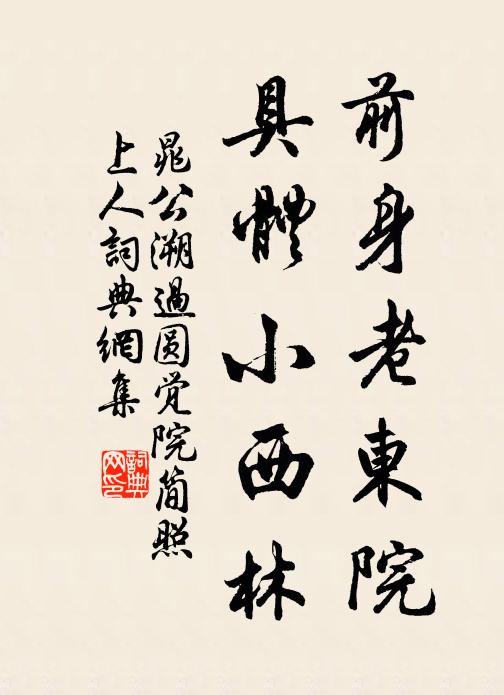 前身老東院
具體小西林
晁公溯過圆觉院简照
上人詞典網集
詞典
网印